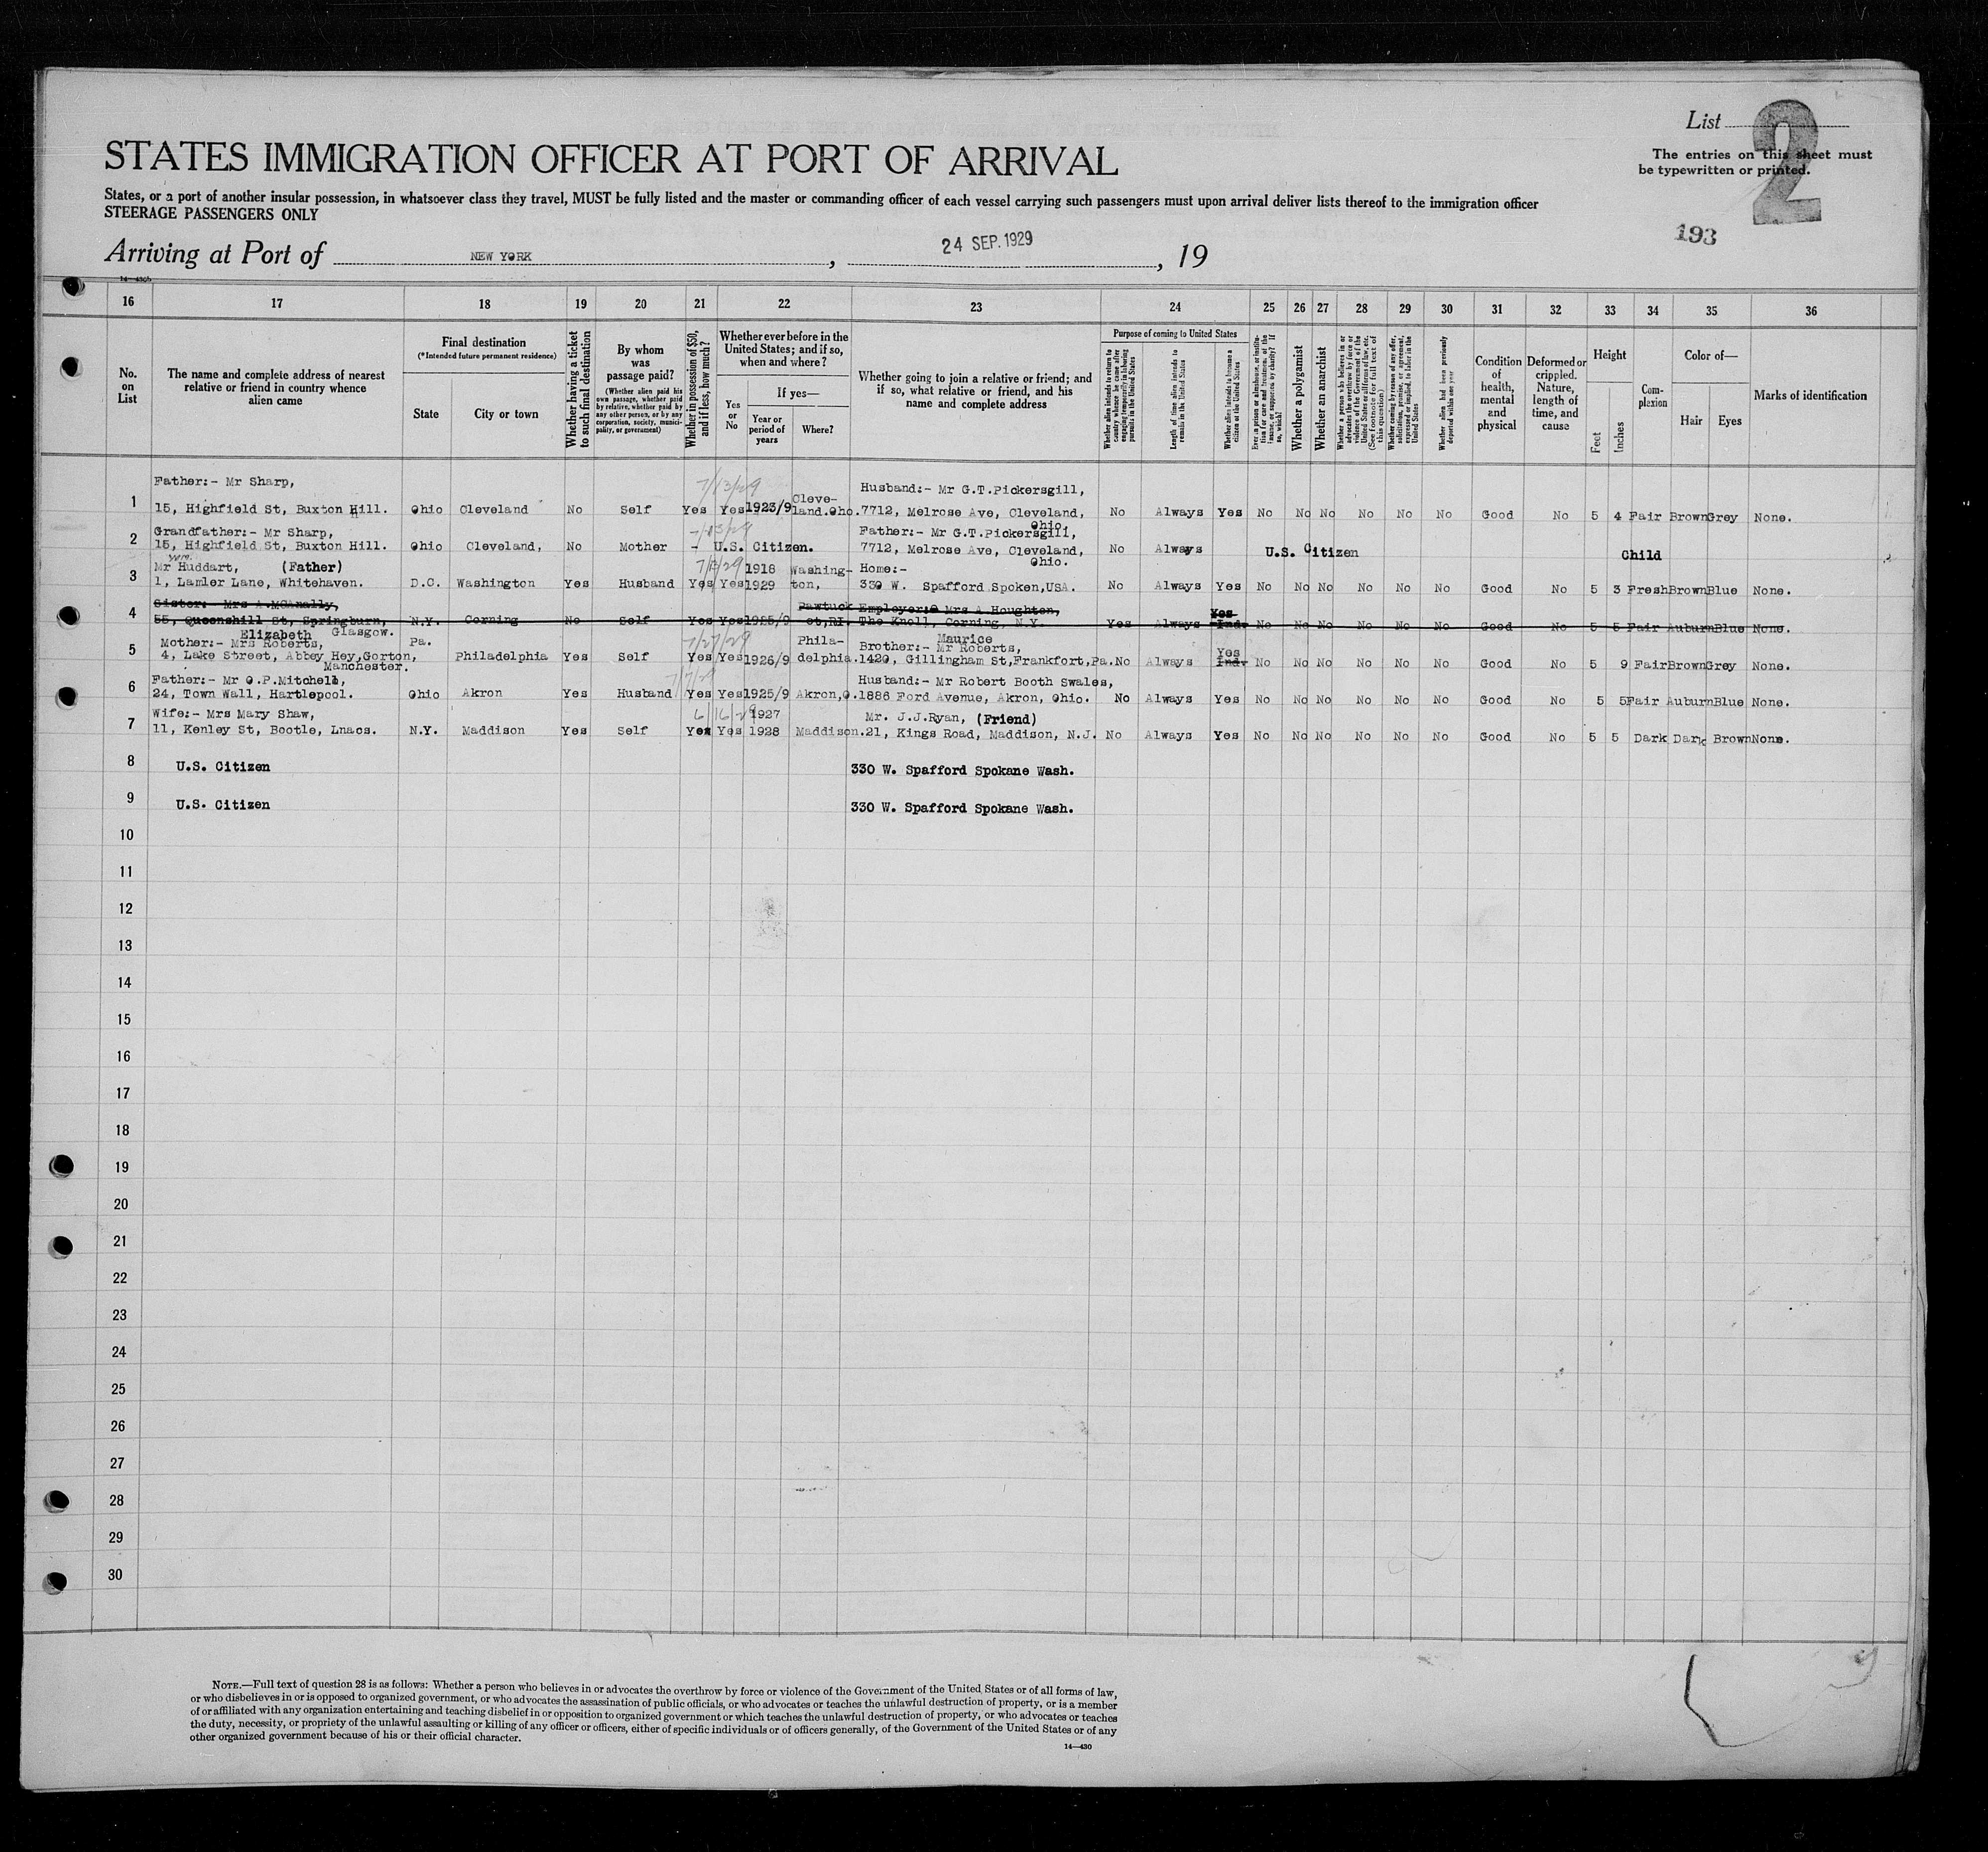 List
2
The entries on this sheet must
be typewritten or printed.
193
STATES IMMIGRATION OFFICER AT PORT OF ARRIVAL
States, or a port of another insular possession, in whatsoever class they travel, MUST be fully listed and the master or commanding officer of each vessel carrying such passengers must upon arrival deliver lists thereof to the immigration officer
STEERAGE PASSENGERS ONLY
Arriving at Port of NEW YORK, 24 SEP. 1929, 19
14—430b
16 17 18 19 20 21 22 23 24 25 26 27 28 29 30 31 32 33 34 35 36
No. on List
The name and complete address of nearest relative or friend in country whence alien came
Final destination
(*Intended future permanent residence)
State
City or town
Whether having a ticket to such final destination
By whom was passage paid?
(Whether alien paid his own passage, whether paid by relative, whether paid by any other person, or by any corporation, society, municipality, or government)
Whether in possession of $50, and if less, how much?
Whether ever before in the United States; and if so, when and where?
Yes or No
If yes—
Year or period of years
Where?
Whether going to join a relative or friend; and if so, what relative or friend, and his name and complete address
Purpose of coming to United States
Whether alien intends to return to country whence he came after engaging temporarily in laboring pursuits in the United States
Length of time alien intends to remain in the United States
Whether alien intends to become a citizen of the United States
Ever in prison or almshouse, or institution for care and treatment of the insane, or supported by charity? If so, which?
Whether a polygamist
Whether an anarchist
Whether a person who believes in or advocates the overthrow by force or violence of the Government of the United States or all forms of law, etc. (See footnote for full text of this question)
Whether coming by reason of any offer, solicitation, promise, or agreement, expressed or implied, to labor in the United States
Whether alien had been previously deported within one year
Condition of health, mental and physical
Deformed or crippled. Nature, length of time, and cause
Height
Feet
Inches
Complexion
Color of—
Hair
Eyes
Marks of identification
Father:- Mr Sharp, 7/13/29 Cleve- Husband:- Mr G.T.Pickersgill,
1 15, Highfield St, Buxton Hill. Ohio Cleveland No Self Yes Yes 1923/9 land.Oho. 7712, Melrose Ave, Cleveland, No Always Yes No No No No No No Good No 5 4 Fair Brown Grey None.
Ohio.
Grandfather:- Mr Sharp, 7/13/29 Father:- Mr G.T.Pickersgill,
2 15, Highfield St, Buxton Hill. Ohio Cleveland, No Mother - U.S. Citizen. 7712, Melrose Ave, Cleveland, No Always U.S. Citizen Child
Ohio.
Mr Huddart, (Father) 1918 Washing- Home:-
3 1, Lamler Lane, Whitehaven. D.C. Washington Yes Husband Yes Yes 1929 ton, 330 W. Spafford Spoken,USA. No Always Yes No No No No No No Good No 5 3 Fresh Brown Blue None.
Sister: Mrs A.MCAnally, Pawtuck Employer: Mrs A Houghton, Yes
4 55, Queenshill St, Springburn, N.Y. Corning No Self Yes Yes 1925/9 et,RI. The Knoll, Corning, N.Y. Yes Always Ind. No No No No No No Good No 5 5 Fair Auburn Blue None.
Glasgow.
Elizabeth Maurice
Mother:- Mrs Roberts, Pa. 7/27/29 Phila- Brother:- Mr Roberts, Yes
5 4, Lake Street, Abbey Hey,Gorton, Philadelphia Yes Self Yes Yes 1926/9 delphia. 1420, Gillingham St,Frankfort,Pa. No Always Ind. No No No No No No Good No 5 9 Fair Brown Grey None.
Manchester.
Father:- Mr O.P.Mitchell, Husband:- Mr Robert Booth Swales,
6 24, Town Wall, Hartlepool. Ohio Akron Yes Husband Yes Yes 1925/9 Akron,O. 1886 Ford Avenue, Akron, Ohio. No Always Yes No No No No No No Good No 5 5 Fair Auburn Blue None.
Wife:- Mrs Mary Shaw, 6/16/29 1927 Mr. J.J.Ryan, (Friend)
7 11, Kenley St, Bootle, Lnacs. N.Y. Maddison Yes Self Yes Yes 1928 Maddison. 21, Kings Road, Maddison, N.J. No Always Yes No No No No No No Good No 5 5 Dark Dark Brown None.
8 U.S. Citizen 330 W. Spafford Spokane Wash.
9 U.S. Citizen 330 W. Spafford Spokane Wash.
10
11
12
13
14
15
16
17
18
19
20
21
22
23
24
25
26
27
28
29
30
NOTE.—Full text of question 28 is as follows: Whether a person who believes in or advocates the overthrow by force or violence of the Government of the United States or of all forms of law,
or who disbelieves in or is opposed to organized government, or who advocates the assassination of public officials, or who advocates or teaches the unlawful destruction of property, or is a member
of or affiliated with any organization entertaining and teaching disbelief in or opposition to organized government or which teaches the unlawful destruction of property, or who advocates or teaches
the duty, necessity, or propriety of the unlawful assaulting or killing of any officer or officers, either of specific individuals or of officers generally, of the Government of the United States or of any
other organized government because of his or their official character.
14—430